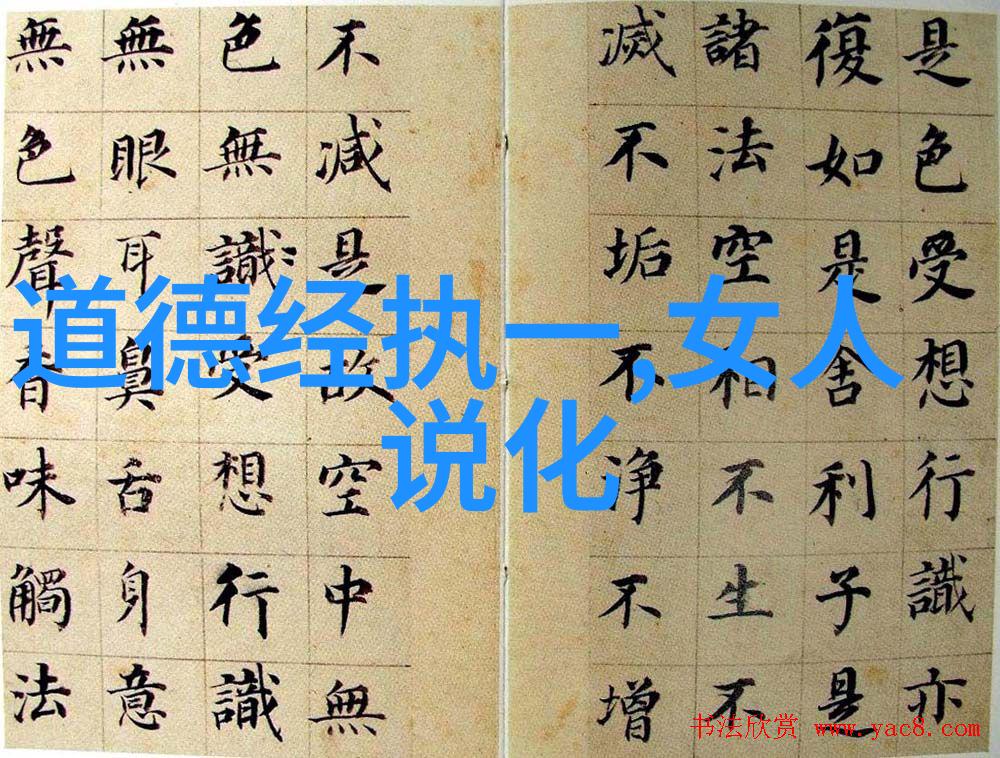 是色受想行識亦
復如是舍利子是
諸法空相不生不
滅不垢不净不增
不減是故空中無
色無識受想行識
無眼耳鼻舌身意
無色聲香味觸法
道德经执一,女人
说化
书法欣赏 www.yac8.com